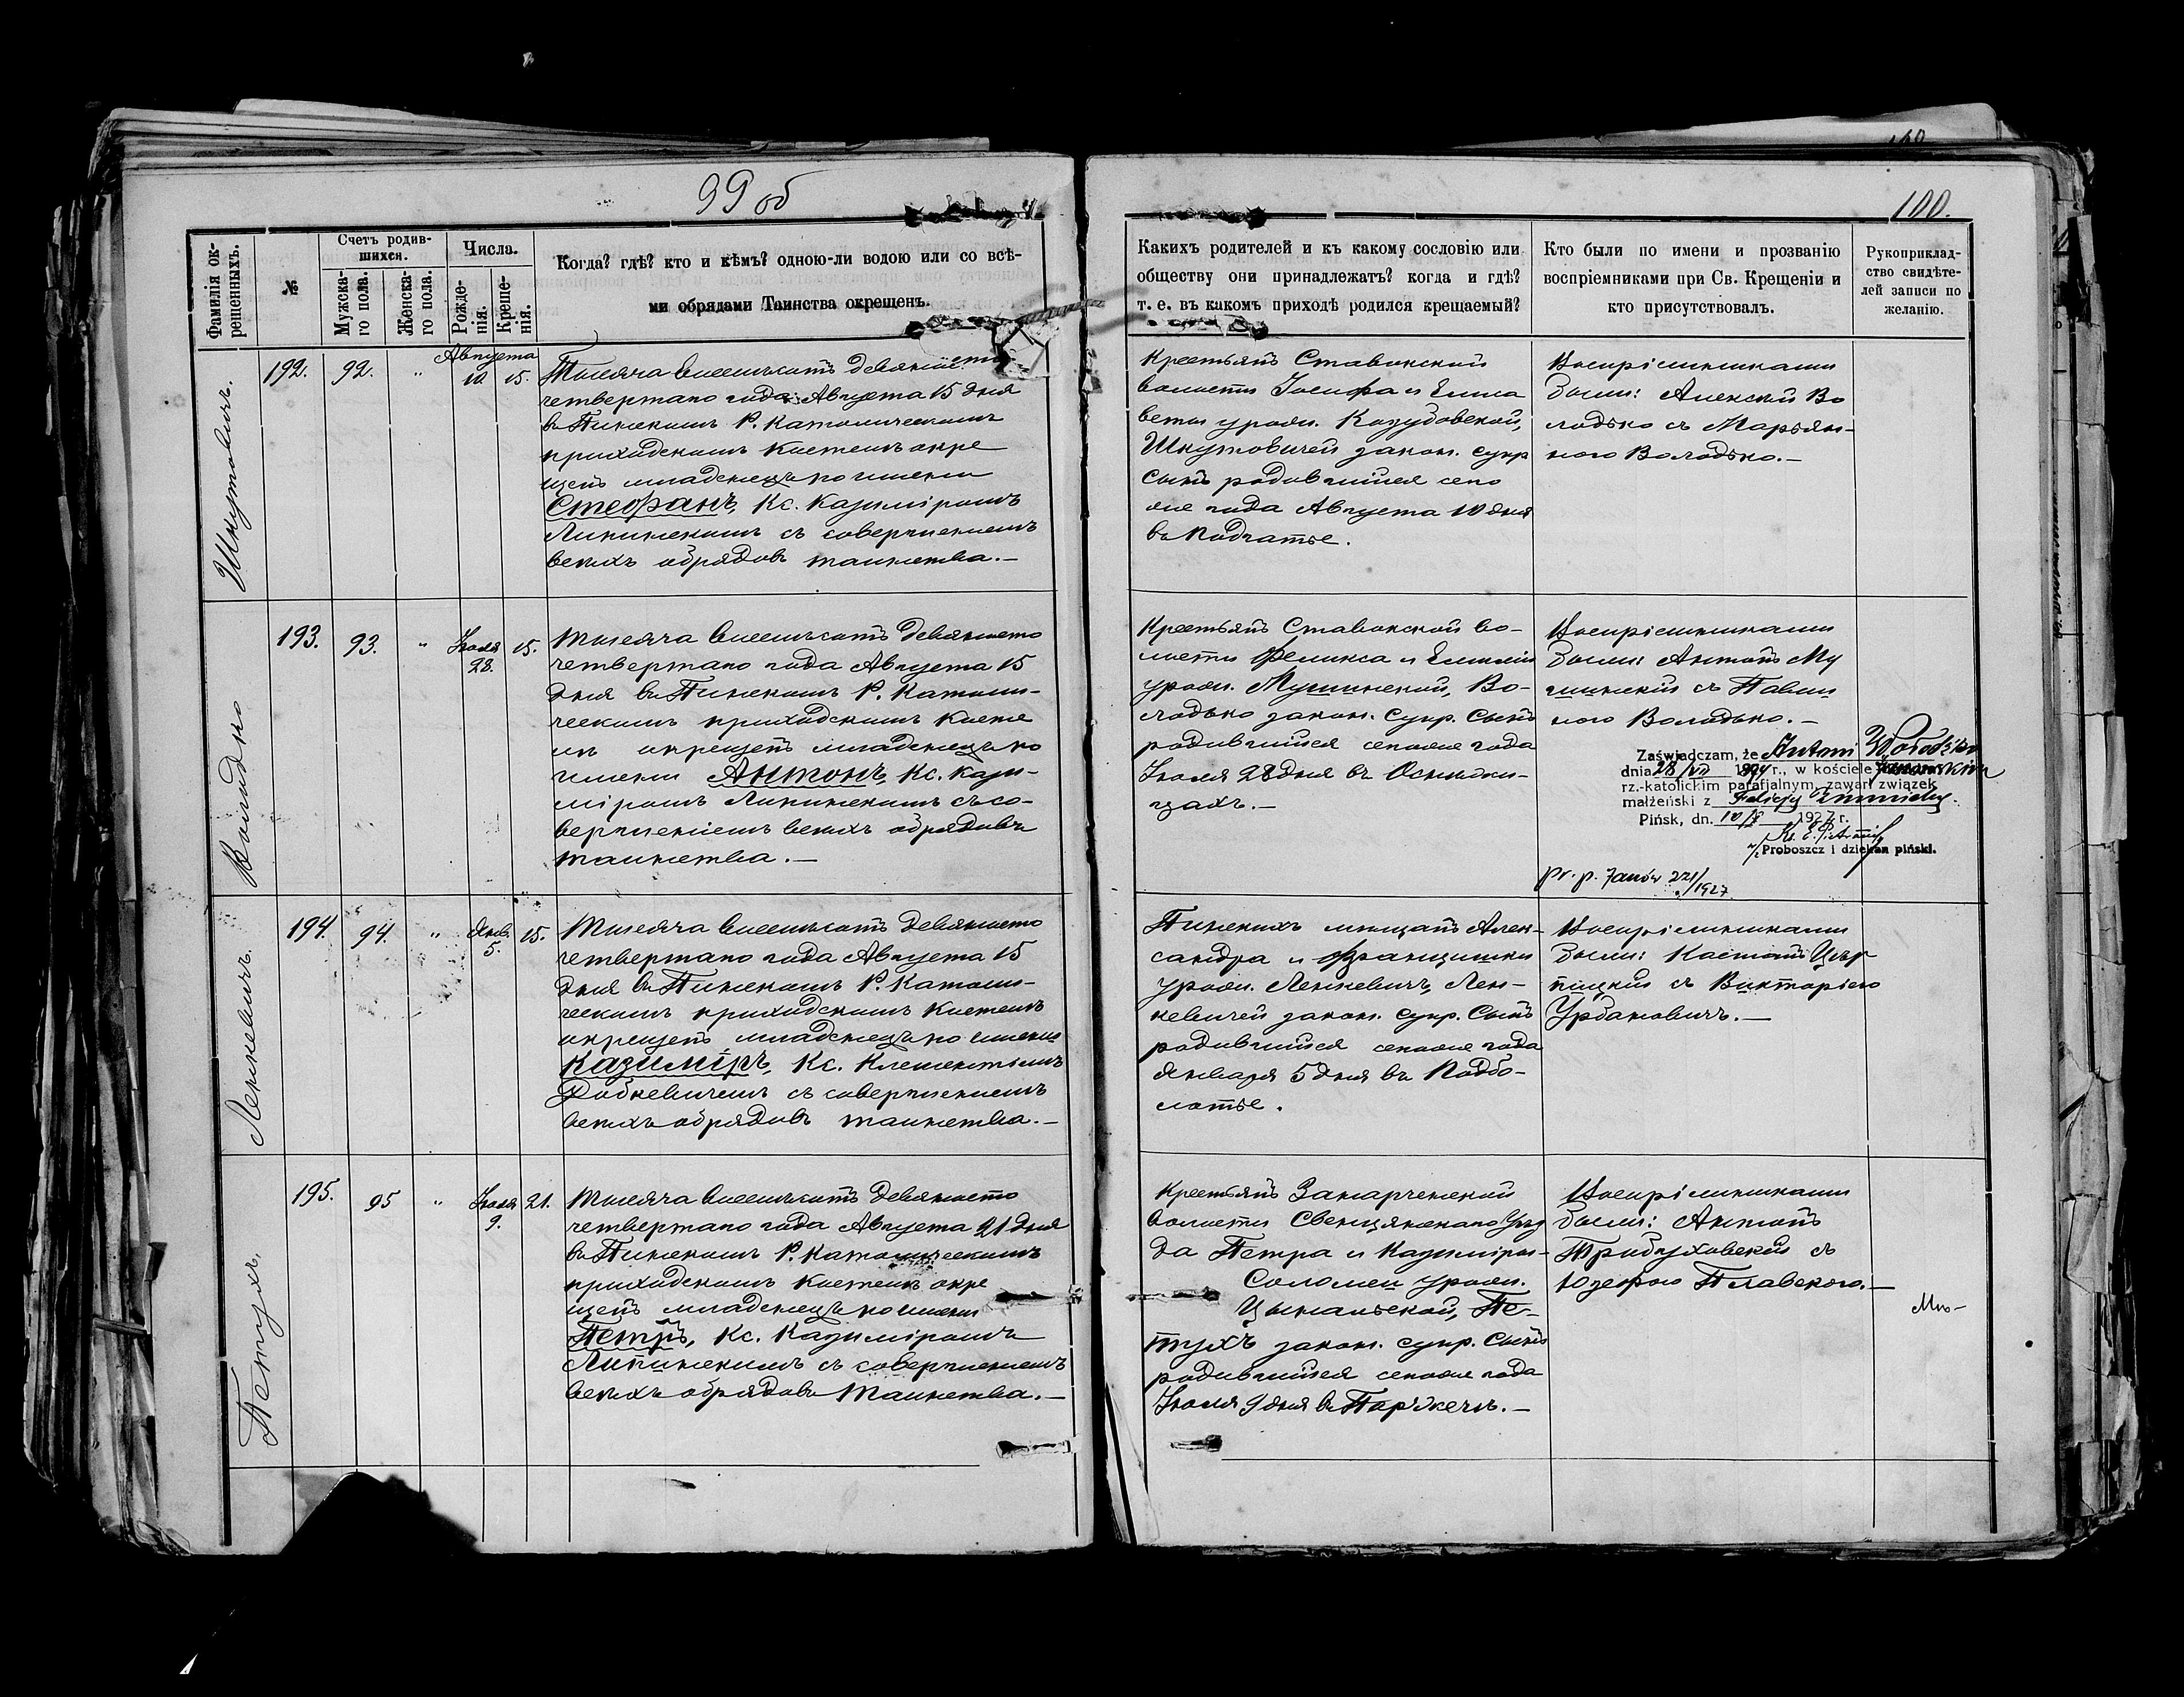 99 об
100.
Фамилія ок-
рещенныхъ.
№
Счетъ родив-
шихся.
Мужска-
го пола.
Женска-
го пола.
Числа.
Рожде-
нія.
Креще-
нія.
Когда? гдѣ? кто и кѣмъ? одною-ли водою или со всѣ-
ми обрядами Таинства окрещенъ.
Какихъ родителей и къ какому сословію или
обществу они принадлежатъ? когда и гдѣ?
т. е. въ какомъ приходѣ родился крещаемый?
Кто были по имени и прозванію
воспріемниками при Св. Крещеніи и
кто присутствовалъ.
Рукоприклад-
ство свидѣте-
лей записи по
желанію.
Шкутовичъ.
192.
92.
"
Августа
10. 15.
Тысяча восемьсотъ девяносто
четвертаго года Августа 15 дня
въ Пинскомъ Р. Католическомъ
приходскомъ костелѣ окре
щенъ младенецъ по имени
Стефанъ, Кс. Казиміромъ
Липинскимъ съ совершеніемъ
всѣхъ обрядовъ таинства.—
Крестьянъ Ставокской
волости Іосифа и Елиса
веты урожд. Козубовской,
Шкутовичей закон. супр
сынъ родившійся сего
же года Августа 10 дня
въ Подгатье.
Воспріемниками
были: Алексѣй Во
лодько съ Марьян-
ною Володько.—
Володко
193.
93.
"
Іюля
28.
15.
Тысяча восемьсотъ девяносто
четвертаго года Августа 15
дня въ Пинскомъ Р. Католи-
ческомъ приходскомъ косте
лѣ окрещенъ младенецъ по
имени Антонъ, Кс. Кази-
міромъ Липинскимъ съ со-
вершеніемъ всѣхъ обрядовъ
таинства.—
Крестьянъ Ставокской во-
лости Феликса и Емиліи
урожд. Мушинской, Во-
лодько закон. супр. сынъ
родившійся сего же года
Іюля 28 дня въ Осницки-
цахъ.—
Воспріемниками
были: Антонъ Му
шинскій съ Павли
ною Володько.—
Zaświadczam, że Antoni Wołodźko
dnia 28/VII 1924 r., w kościele Janowskim
rz.-katolickim parafjalnym, zawarł związek
małżeński z Felicją
Pińsk, dn. 10/ 1927 r.
Proboszcz i dziekan piński.
pr. p. Janów 221/1927
Ленкевичъ.
194.
94.
"
Янв.
5.
15.
Тысяча восемьсотъ девяносто
четвертаго года Августа 15
дня въ Пинскомъ Р. Католи-
ческомъ приходскомъ костелѣ
окрещенъ младенецъ по имени
Казиміръ, Кс. Клементьемъ
Добкевичемъ съ совершеніемъ
всѣхъ обрядовъ таинства.—
Пинскихъ мѣщанъ Алек-
сандра и Францишки
урожд. Ленкевичъ, Лен-
кевичей закон. супр. сынъ
родившійся сего же года
Января 5 дня въ Подбо-
лотье.
Воспріемниками
были: Касьянъ
съ Викторіею
Урбановичъ.—
Петухъ.
195.
95
"
Іюля
9.
21.
Тысяча восемьсотъ девяносто
четвертаго года Августа 21 дня
въ Пинскомъ Р. Католическомъ
приходскомъ костелѣ окре
щенъ младенецъ по имени
Петръ, Кс. Казиміромъ
Липинскимъ съ совершеніемъ
всѣхъ обрядовъ таинства.—
Крестьянъ
волости Свенцянскаго Уѣз
да Петра и Казиміры-
Соломеи урожд.
Цыкальской, Пе-
тухъ закон. супр. сынъ
родившійся сего же года
Іюля 9 дня въ Порѣчьѣ.—
Воспріемниками
были: Антонъ
Трибуховскій съ
Юзефою Плавскою.—